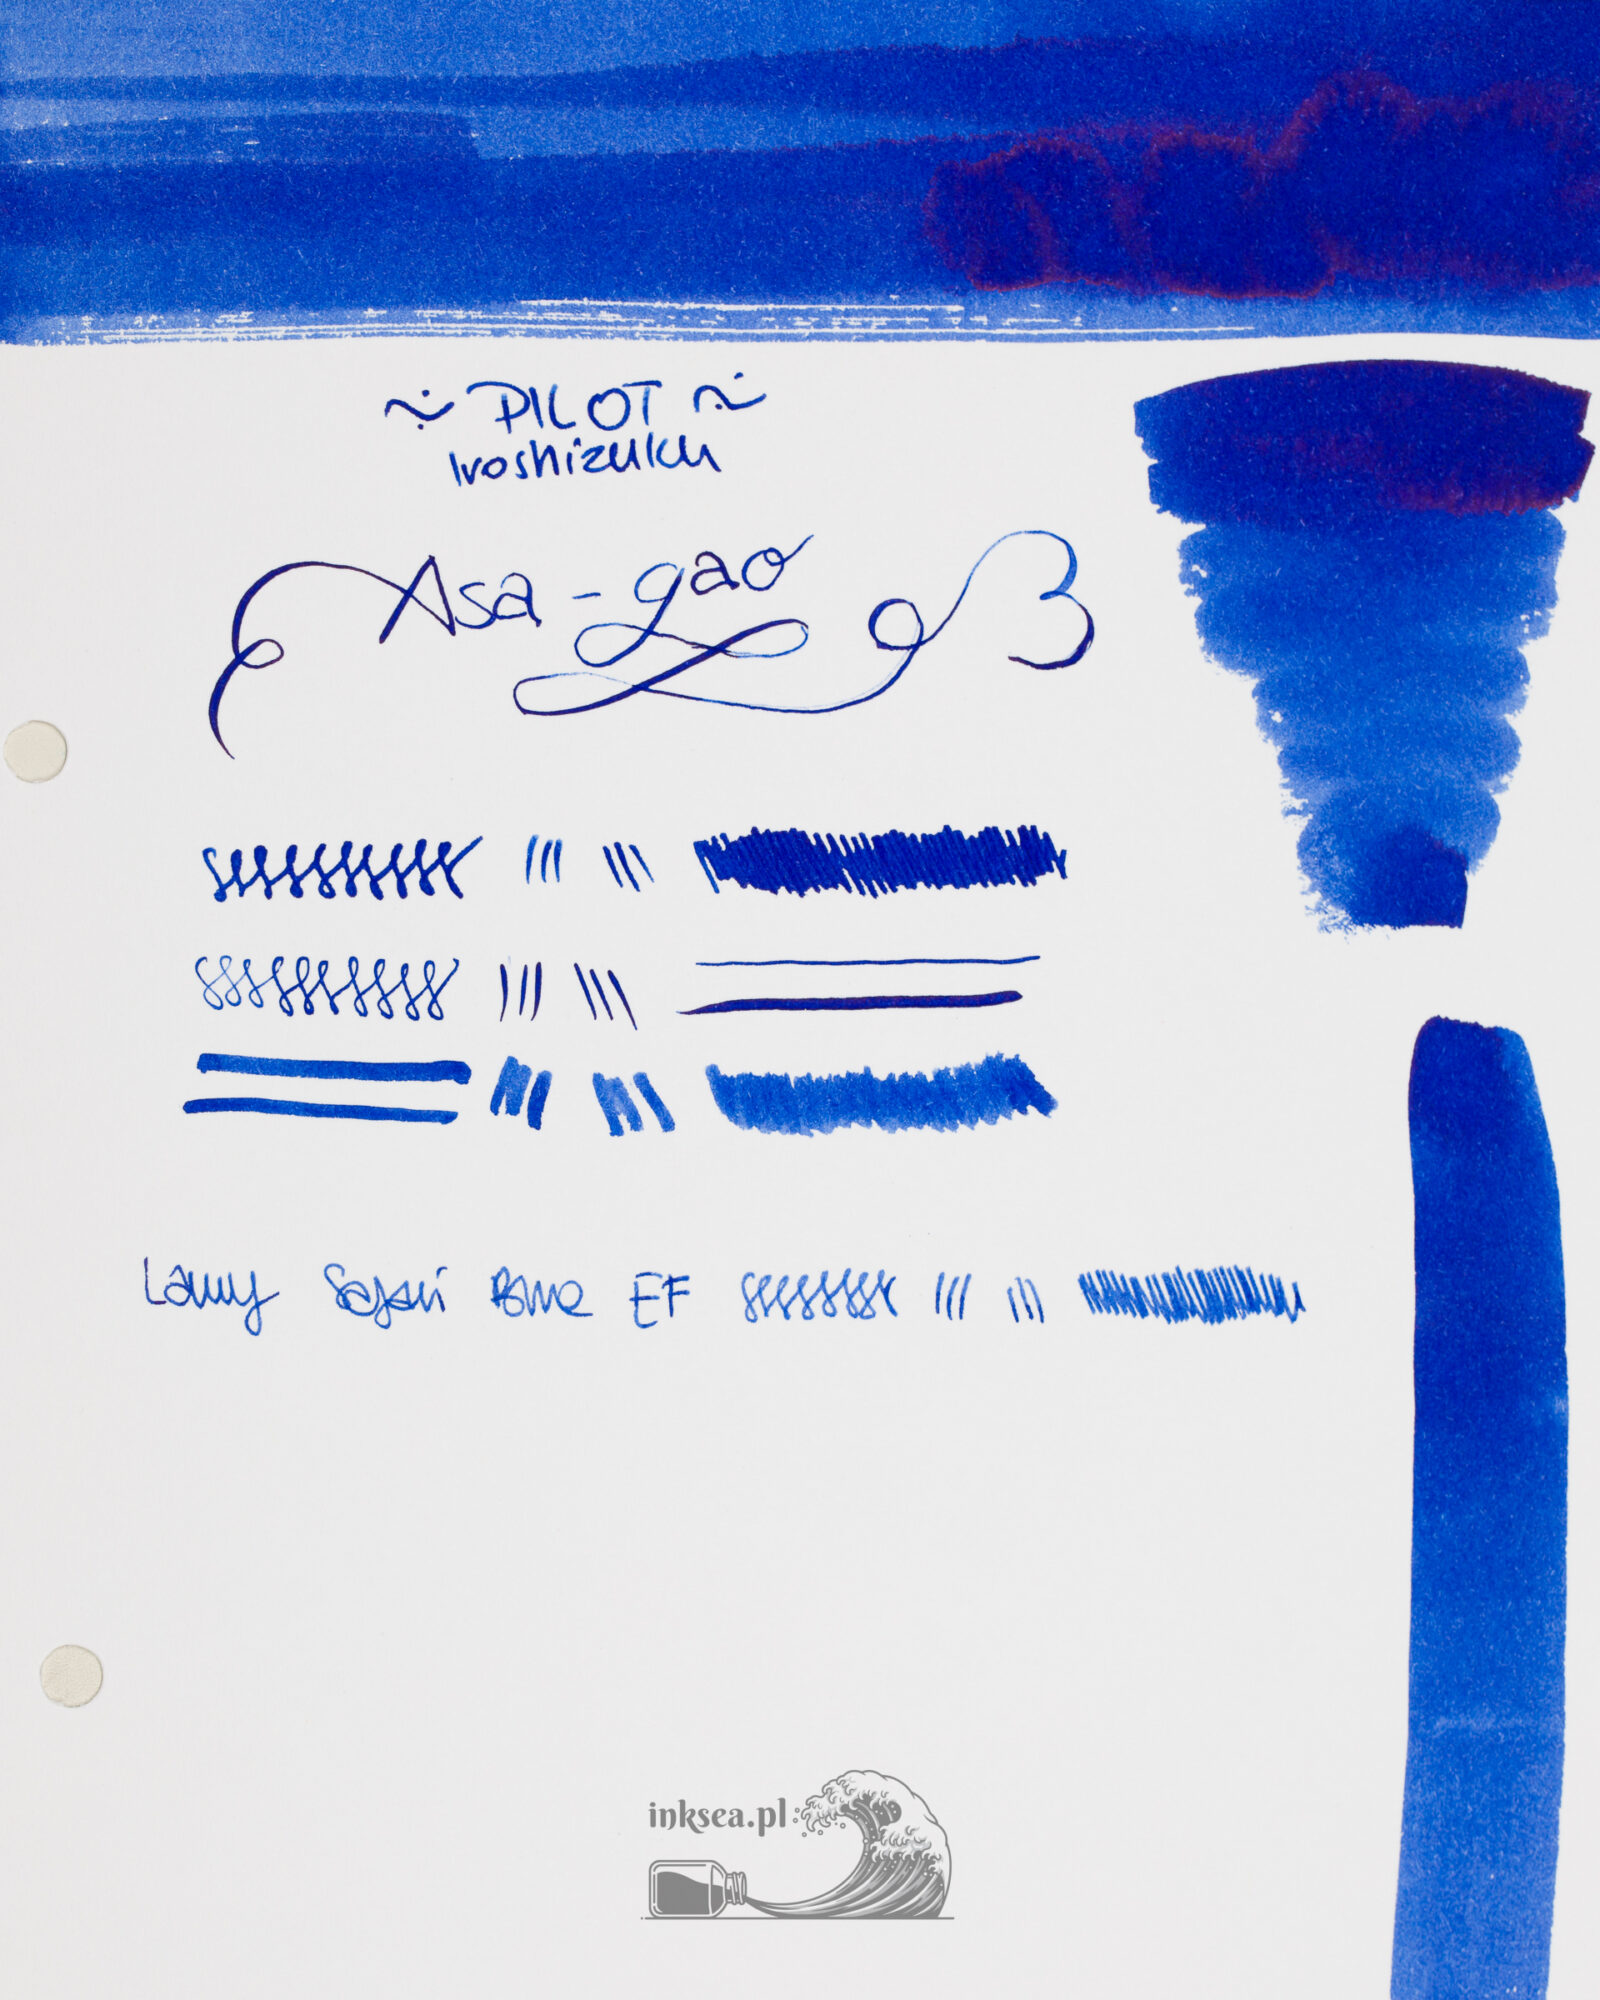 ~ PILOT ~
Iroshizuku
Asa-gao
Lamy Safari EF
inksea.pl